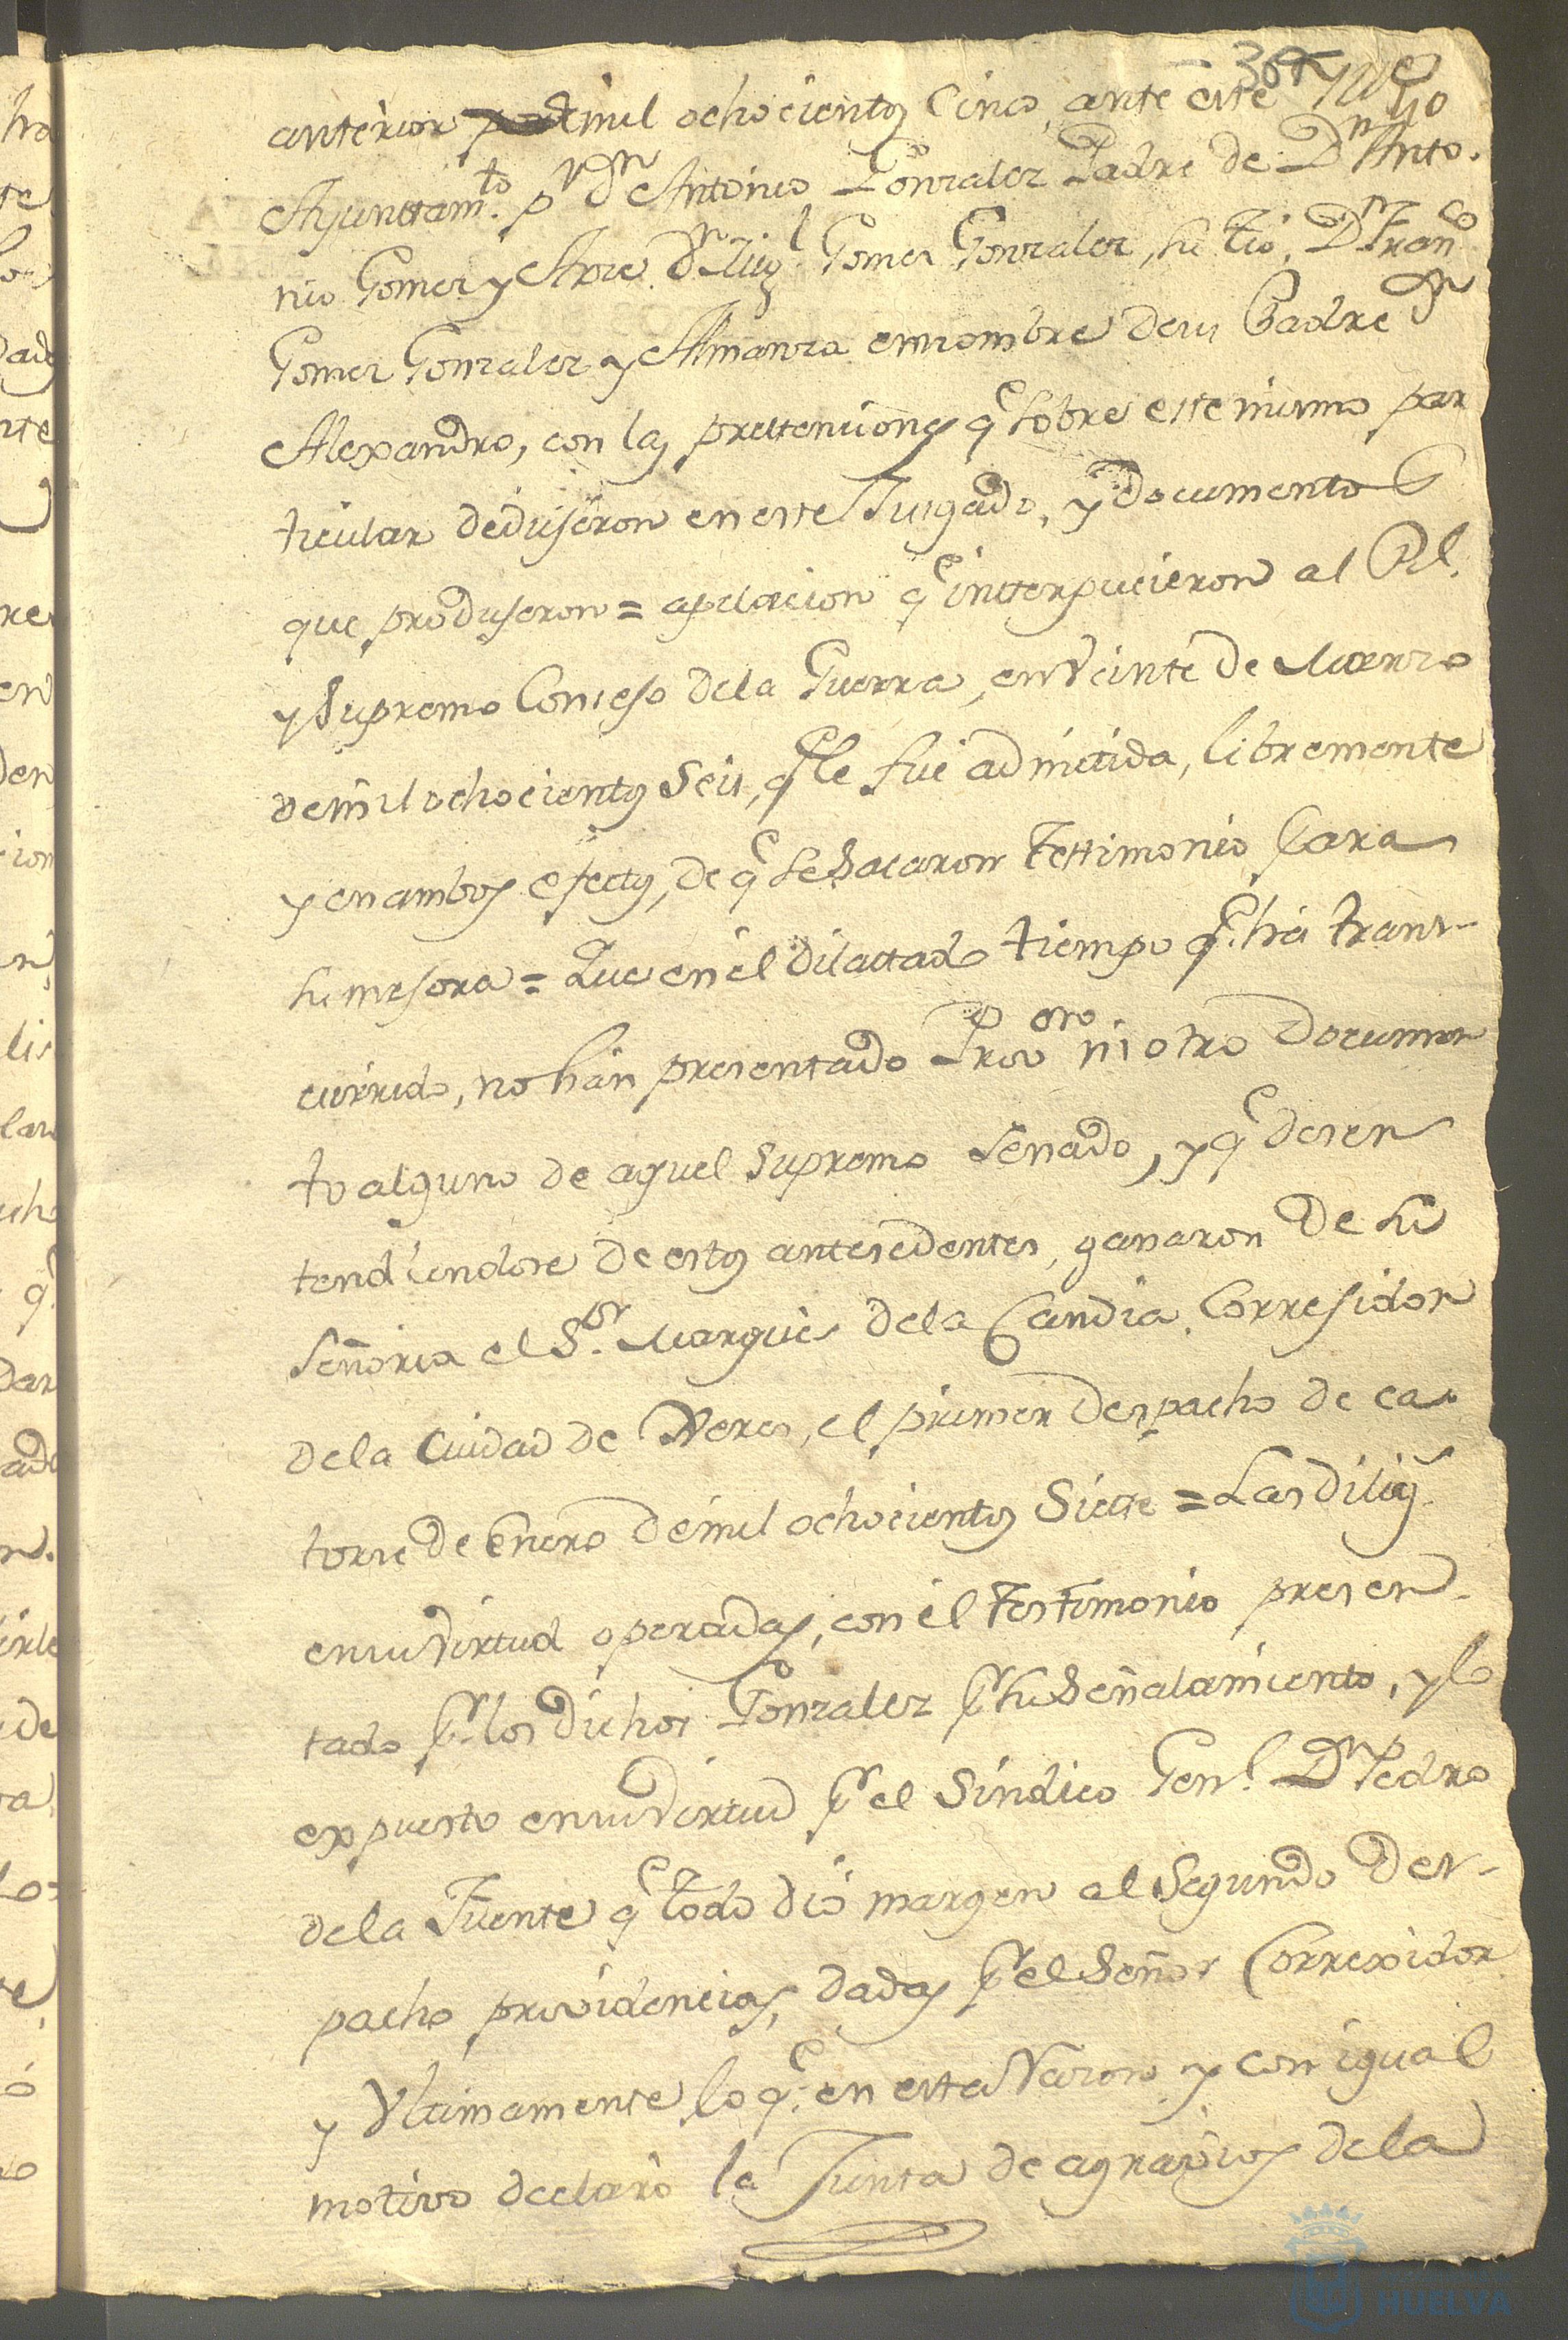 anterior demil ochocientos Cinco, ante este Ille
Ayunttam.to pr dn Antonio Gonzalez Padre de Dn Anto.
nio Gomez y Arze dn Migl Gomez Gonzalez, su tio, Dn Franco
Gomez Gonzalez y Almanza ennombre desu Padre dn
Alexandro, con las prettenciones qe sobre este mismo par
ticular dedujeron eneste Jusgado, y Documentos
que produjeron = apelacion qe intterpucieron al Rl.
y Supremo Consejo dela Guerra, en Veinte de Marzo
demil ochocientos Seis, qe le fué admitida, libremente
y en ambos efectos, de qe se Sacaron Testimonio para
su mejora = Que en él dilattado tiempo qe. há trans-
currido, no hán presentado Provon. ni otro Documen
to alguno de aquel Supremo Senado, y qe desen
tendiendose de estos antesedentes, ganaron de Su
Señoria el S.or Marqués dela Candia, Corregidor
dela Ciudad de Xeres, el primer Despacho de ca-
torse de Enero demil ochocientos Siette = Las Dilig.s
ensuvirtud operadas, con él Testimonio presen-
tado pr. los Dichos Gonzalez pr su Señalamiento, y lo
expuesto ensuvirtud pr el Síndico Genl. Dn Pedro
dela Fuente qe todo dió margen al Segundo Des-
pacho providencias, dadas pr el Señor Correxidor
y Ultimamente lo qe. en esta Razon y con igual
motivo declaró la Junta de agravios dela
HUELVA